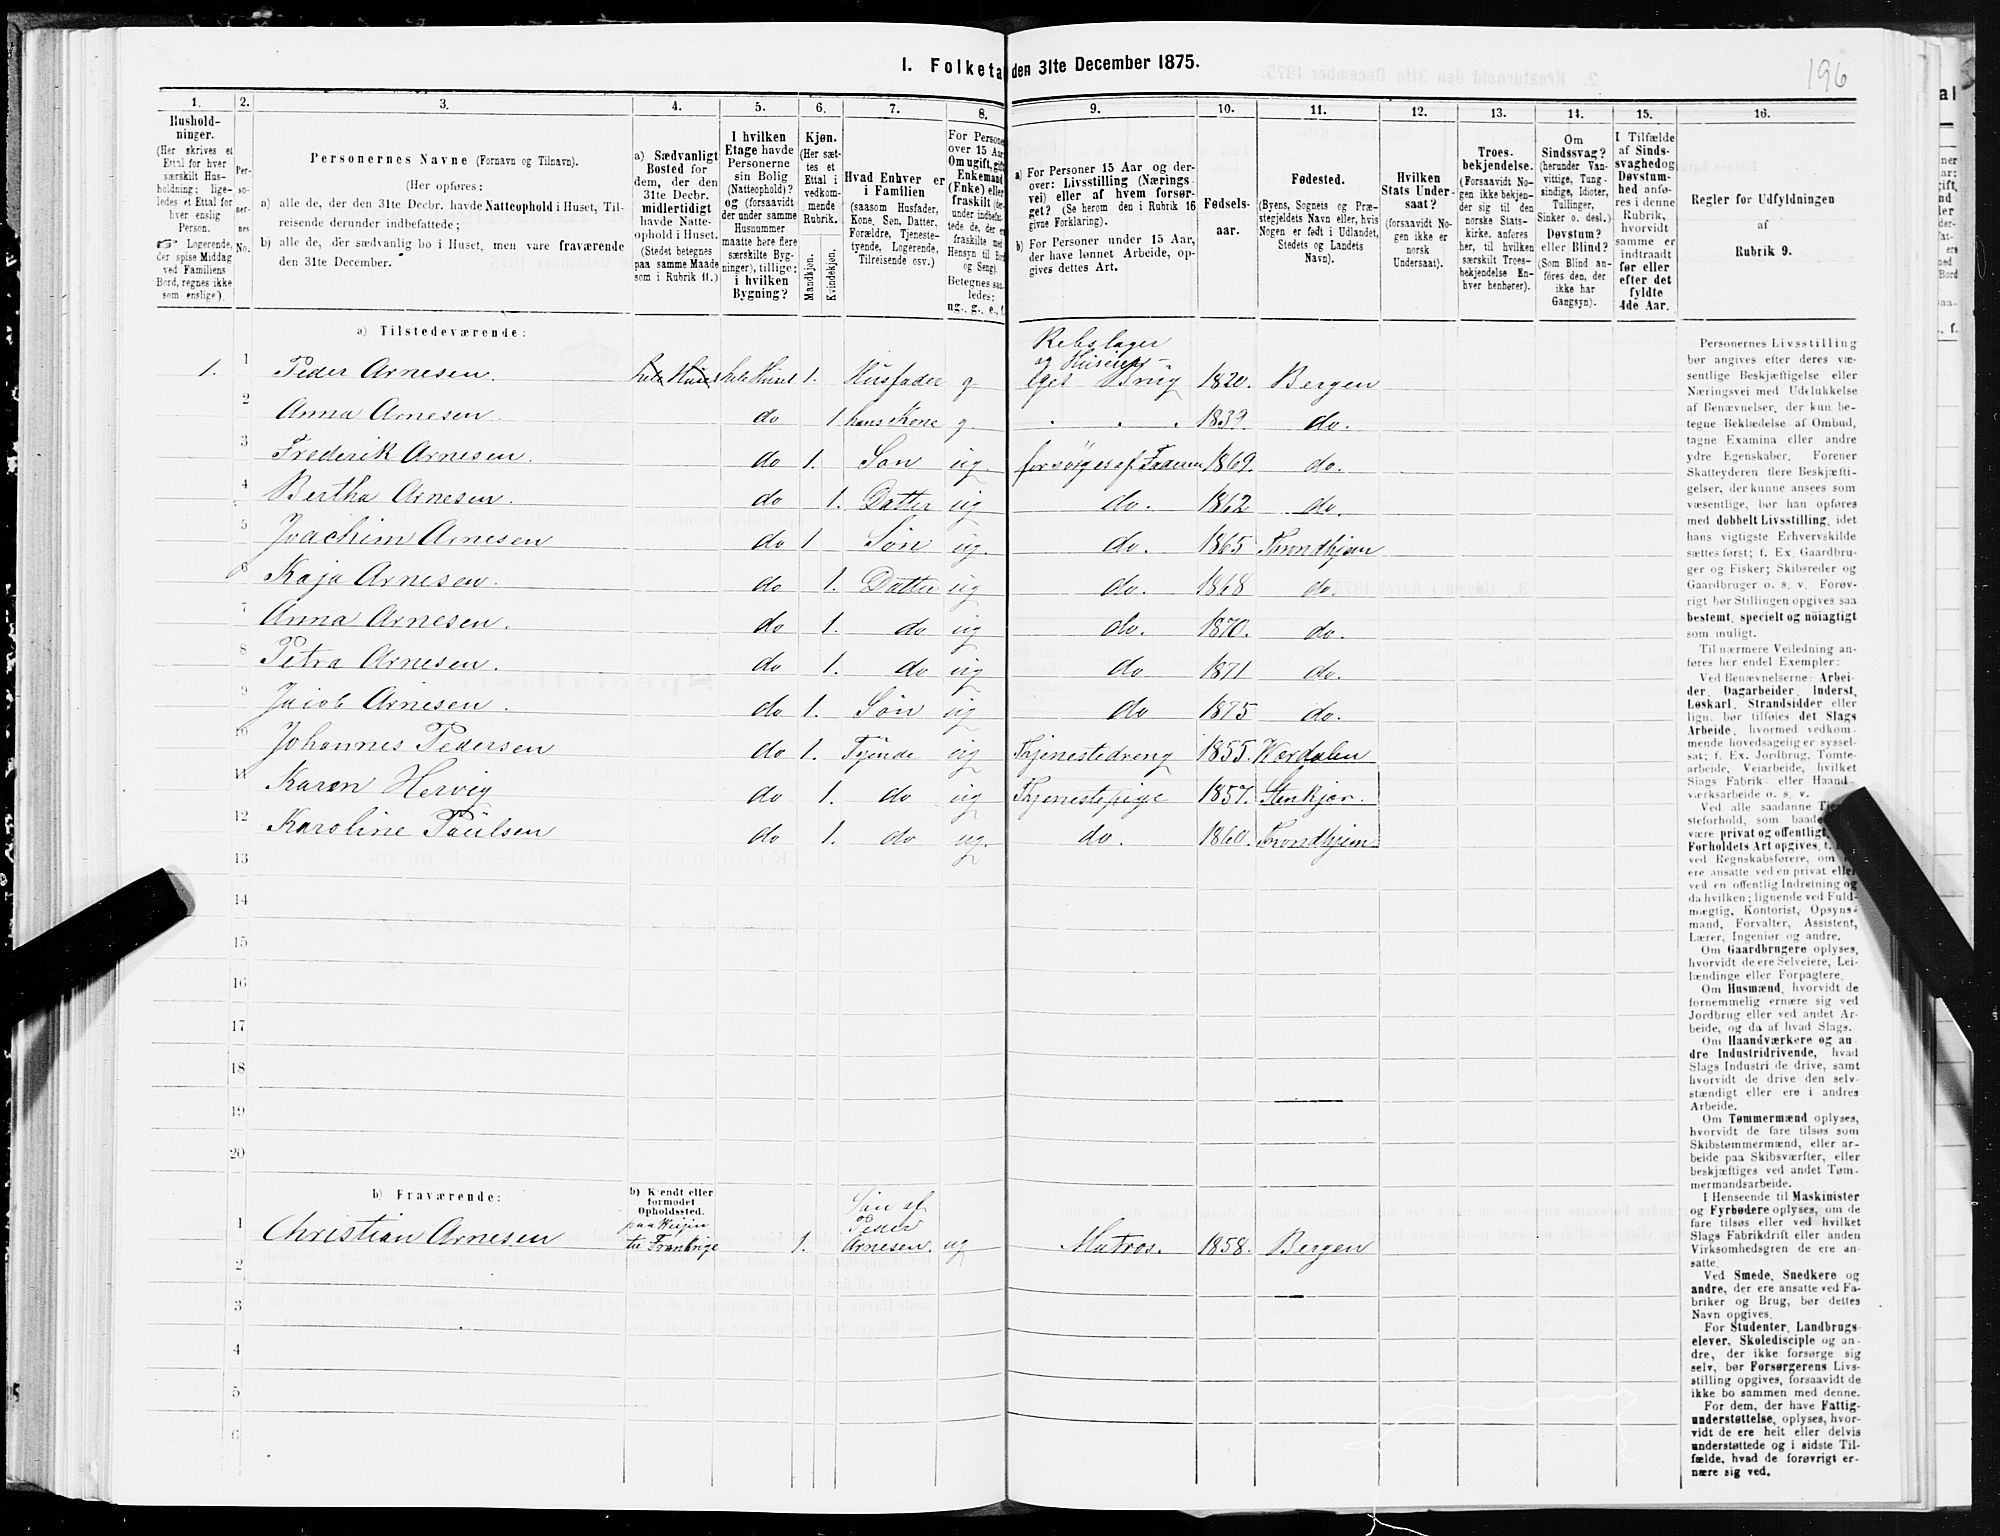 I. Folketa den 31te December 1875.
196
1. 2. 3. 4. 5. 6. 7. 8. 9. 10. 11. 12. 13. 14. 15. 16.
Hushold-
ninger.
(Her skrives et
Ettal for hver
særskilt Hus-
holdning; lige-
ledes et Ettal for
hver enslig
Person.
☞ Logerende,
der spise Middag
ved Familiens
Bord, regnes ikke
som enslige).
Per-
so-
ner-
nes
No.
Personernes Navne (Fornavn og Tilnavn).
(Her opføres:
a) alle de, der den 31te Decbr. havde Natteophold i Huset, Til-
reisende derunder indbefattede;
b) alle de, der sædvanlig bo i Huset, men vare fraværende
den 31te December.
a) Sædvanligt
Bosted for
dem, der den
31te Decbr.
midlertidigt
havde Natte-
ophold i Huset.
(Stedet betegnes
paa samme Maade
som i Rubrik 11.)
I hvilken
Etage havde
Personerne
sin Bolig
(Natteophold)?
og (forsaavidt
der under samme
Husnummer
maatte høre flere
særskilte Byg-
ninger), tillige:
i hvilken
Bygning?
Kjøn.
(Her sæt-
tes et
Ettal i
vedkom-
mende
Rubrik.
Mandkjøn.
Kvindekjøn.
Hvad Enhver er
i Familien
(saasom Husfader,
Kone, Søn, Datter,
Forældre, Tjeneste-
tyende, Logerende,
Tilreisende osv.)
For Persone
over 15 Aar
Om ugift, gift
Enkemand
(Enke) eller
fraskilt (der-
under indbefat-
tede de, der er
fraskilte med
Hensyn til Bor
og Seng).
Betegnes saa-
ledes:
ug., g., e., f.
a) For Personer 15 Aar og der-
over: Livsstilling (Nærings
vei) eller af hvem forsør-
get? (Se herom den i Rubrik 16
givne Forklaring).
b) For Personer under 15 Aar,
der have lønnet Arbeide, op-
gives dettes Art.
Fødsels-
aar.
Fødested.
(Byens, Sognets og Præ-
stegjeldets Navn eller, hvis
Nogen er født i Udlandet,
Stedets og Landets
Navn).
Hvilken
Stats Under-
saat?
(forsaavidt No-
gen ikke er
norsk
Undersaat).
Troes-
bekjendelse.
(Forsaavidt No-
gen ikke bekjen-
der sig til den
norske Stats-
kirke, anføres
her, til hvilken
særskilt Troes-
bekjendelse En-
hver henhører).
Om
Sindssvag?
(herunder Van-
vittige, Tung-
sindige, Idioter,
Tullinger,
Sinker o. desl.)
Døvstum?
eller Blind?
(Som Blind an-
føres den, der
ikke har
Gangsyn).
I Tilfælde
af Sinds-
svaghed og
Døvstum-
hed anfø-
res i denne
Rubrik,
hvorvidt
samme er
indtraadt
før eller
efter det
fyldte
4de Aar.
Regler for Udfyldningen
af
Rubrik 9.
a) Tilstedeværende:
1. 1 Peder Arnesen. hele Huset hele Huset 1. Husfader g Rebslager og Huseier eget Brug 1820. Bergen
2 Anna Arnesen do 1 hans Kone g . . . 1839. do.
3 Frederik Arnesen. do 1. Søn ug. forsørges af Faderen 1869. do.
4 Bertha Arnesen. do 1. Datter ug do. 1862 do.
5 Joachim Arnesen do 1 Søn ug. do. 1865 Trondhjem
6 Kaja Arnesen. do 1. Datter ug do. 1868 do.
7 Anna Arnesen. do 1. do ug do. 1870. do.
8 Petra Arnesen. do 1. do ug do 1871 do.
9 Jacob Arnesen. do 1. Søn ug do 1875 do.
10 Johannes Pedersen do 1. Tyende ug Tjenestedreng 1855. Værdalen
11 Karen Hervig do 1. do ug Tjenestepige 1857. Stenkjær.
12 Karoline Paulsen do 1. do ug. do. 1860. Trondhjem
13
14
15
16
17
18
19
20
b) Fraværende:
b) Kjendt eller
formodet
Opholdssted.
1 Christian Arnesen paa Reisen til Frankrige 1. Søn af Peder Arnesen. ug Matros. 1858. Bergen
2
3
4
5
6
Personernes Livsstilling
bør angives efter deres væ-
sentlige Beskjæftigelse eller
Næringsvei med Udelukkelse
af Benævnelser, der kun be-
tegne Beklædelse af Ombud,
tagne Examina eller andre
ydre Egenskaber. Forener
Skatteyderen flere Beskjæfti-
gelser, der kunne ansees som
væsentlige, bør han opføres
med dobbelt Livsstilling, idet
hans vigtigste Erhvervskilde
sættes først; f. Ex. Gaardbru-
ger og Fisker; Skibsreder og
Gaardbruger o. s. v. Forøv-
rigt bør Stillingen opgives saa
bestemt, specielt og nöiagtigt
som muligt.
Til nærmere Veiledning an-
føres her endel Exempler:
Ved Benævnelserne: Arbei-
der, Dagarbeider, Inderst,
Løskarl, Strandsidder eller
lign. bør tilføies det Slags
Arbeide, hvormed vedkom-
mende hovedsagelig er syssel-
sat; f. Ex. Jordbrug, Tomte-
arbeide, Veiarbeide, hvilket
Slags Fabrik- eller Haand-
værksarbeide o. s. v.
Ved alle saadanne Tje
steforhold, som baade
være privat og offentligt,
Forholdets Art opgives, t.
ved Regnskabsførere, om
ere ansatte ved en privat eller
ved en offentlig Indretning og
da hvilken; lignende ved Fuld-
mægtig, Kontorist, Opsyns-
mand, Forvalter, Assistent,
Lærer, Ingeniør og andre.
Om Gaardbrugere oplyses,
hvorvidt de ere Selveiere, Lei-
lændinge eller Forpagtere.
Om Husmænd, hvorvidt de
fornemmelig ernære sig ved
Jordbrug eller ved andet Ar-
beide, og da af hvad Slags.
Om Haandværkere og an-
dre Industridrivende, hvad
Slags Industri de drive, samt
hvorvidt de drive den selv-
stændigt eller ere i andres
Arbeide.
Om Tømmermænd oplyses,
hvorvidt de fare tilsøs som
Skibstømmermænd, eller ar-
beide paa Skibsværfter, eller
beskjæftiges ved andet Tøm-
mermandsarbeide.
I Henseende til Maskinister
og Fyrbødere oplyses, om de
fare tilsøs eller ved hvilket
Slags Fabrikdrift eller anden
Virksomhedsgren de ere an-
satte.
Ved Smede, Snedkere og
andre, der ere ansatte ved Fa-
briker og Brug, bør dettes
Navn opgives.
For Studenter, Landbrugs-
elever, Skoledisciple og an-
dre, der ikke forsørge sig
selv, bør Forsørgerens Livs-
stilling opgives, forsaavidt de
ikke bo sammen med denne.
For dem, der have Fattig-
understøttelse, oplyses, hvor-
vidt de ere helt eller delvis
understøttede og i sidste Til-
fælde, hvad de forøvrigt er-
nære sig ved.